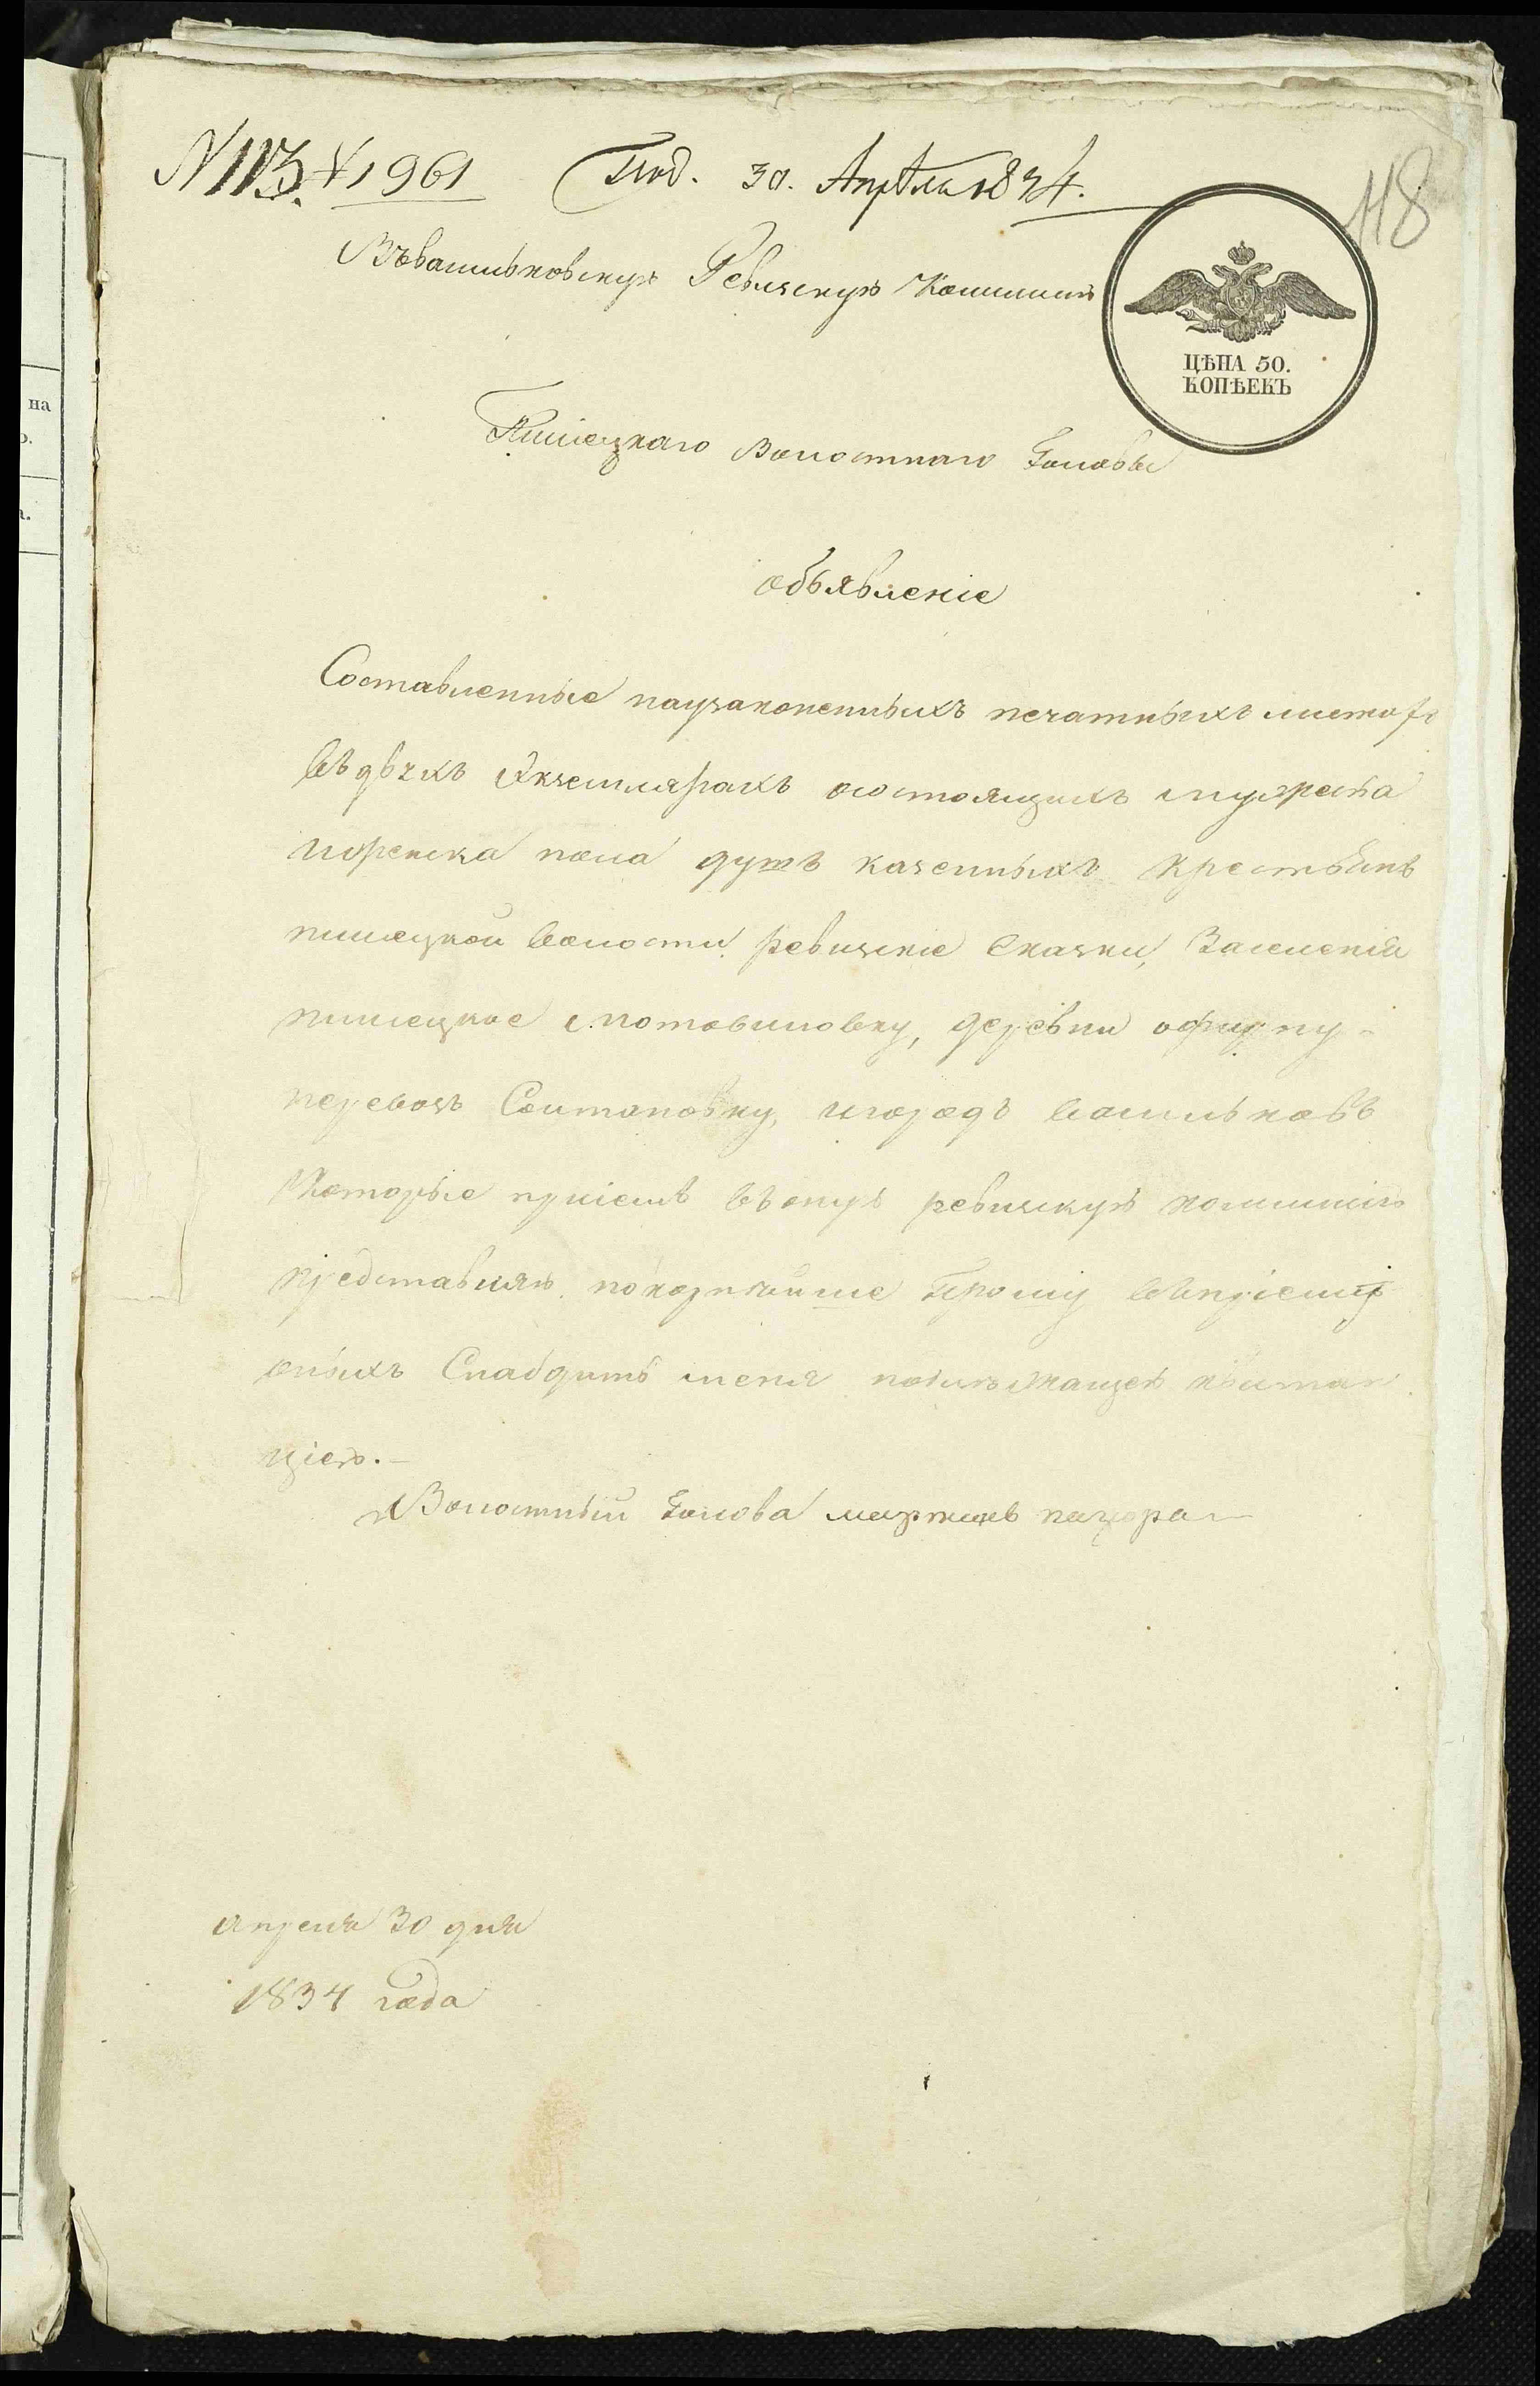 N 113. 1961 Под. 30. Апрѣля 1834.
118
Въвасильковскую Ревизскую Комисию
ЦѢНА 50.
КОПѢЕКЪ
Плисецкаго Волостнаго Головы
объявленіе
Составленные наузаконенныхъ печатныхъ листахъ
въ двухъ Экземплярахъ осостоящихъ мужеска
иженска пола душъ казенныхъ крестьянъ
плисецкой волости ревизскіе Сказки, Заселенія
плисецкое мотовиловку, деревни
перевозъ Солтановку, игородъ васильковъ
Которые присемъ въоную ревизскую комисию
представляя покорнѣйше Прошу вопріемѣ
оныхъ Снабдить меня подлежащею квитан
цією.
Волостный Голова
на
апреля 30 дня
1834 года